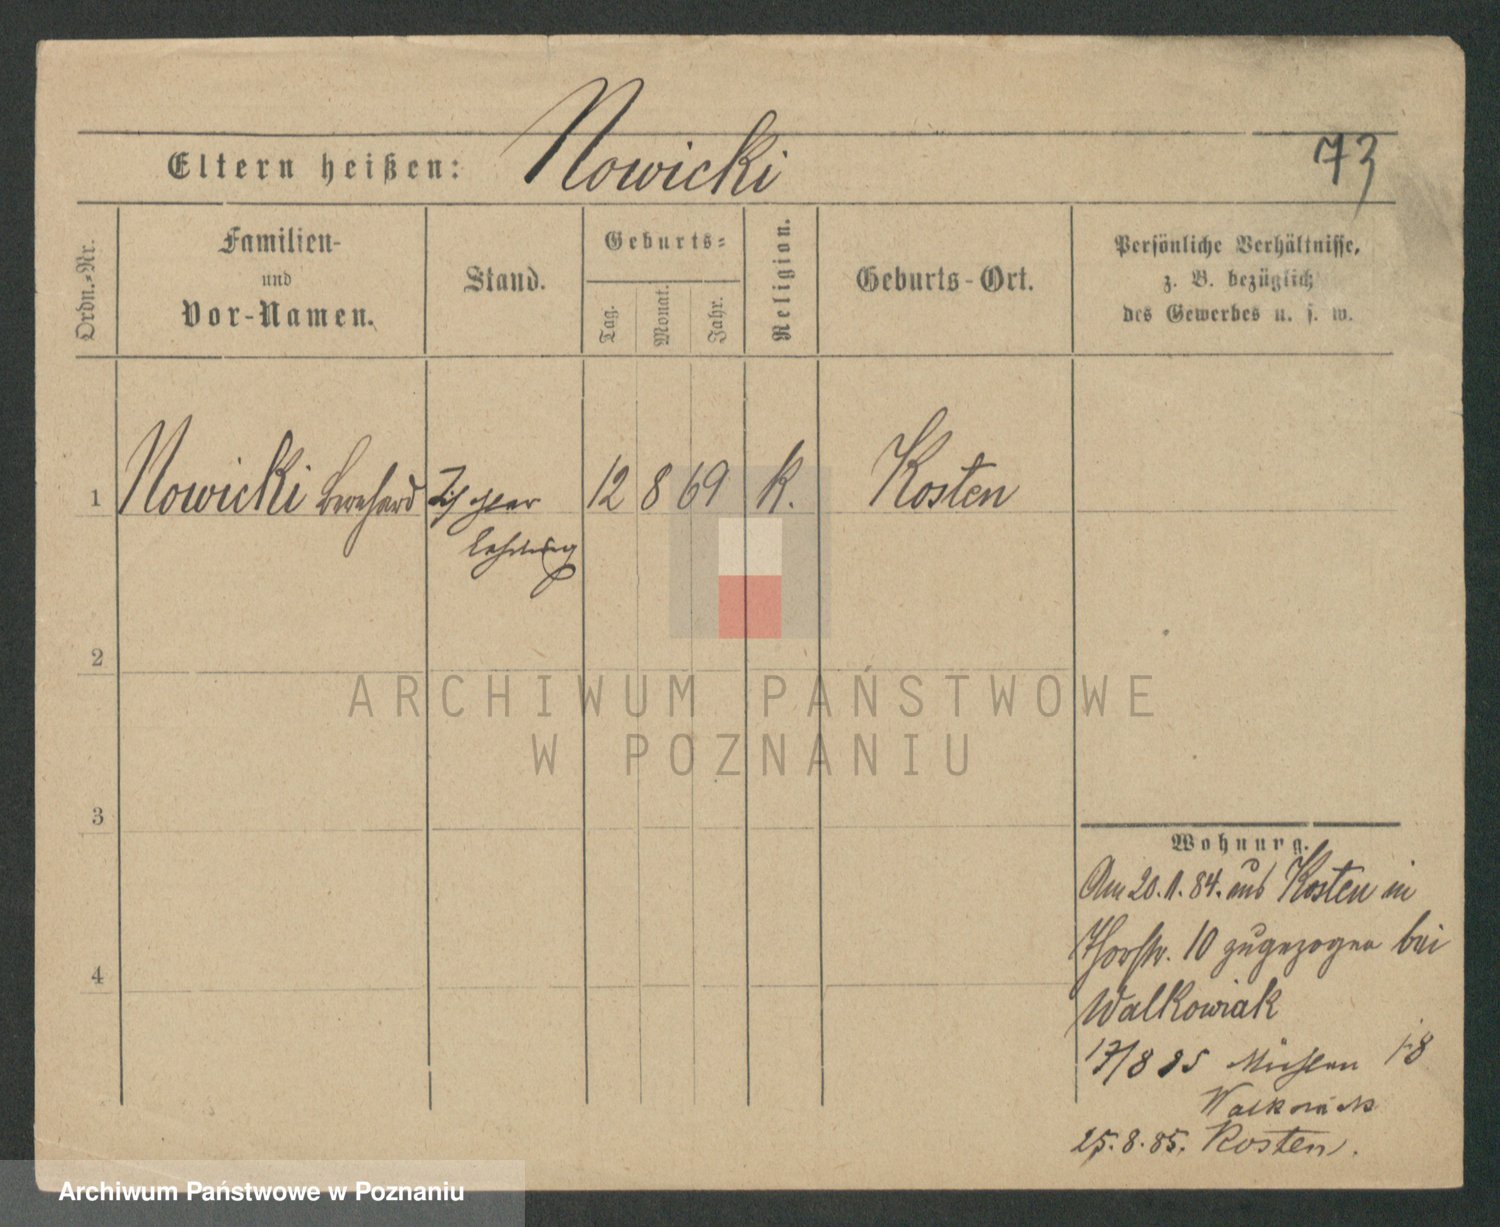 Nowicki
73
Eltern heißen:
Ordn.-Nr.
Familien-
und
Vor-Namen.
Stand.
Geburts-
Tag.
Monat.
Jahr.
Religion.
Geburts-Ort.
Persönliche Verhältnisse,
z. B. bezüglich
des Gewerbes u. s. w.
1 Nowicki Bernhard Tischler 12 8 69 K. Kosten
Lehrling
2
ARCHIWUM PAŃSTWOWE
W POZNANIU
3
Wohnung.
Am 20.11.84. aus Kosten in
10 zugezogen bei
4
Walkowiak
17/8 85 Mühlen 18
Walkowiak
25.8.85. Kosten.
Archiwum Państwowe w Poznaniu